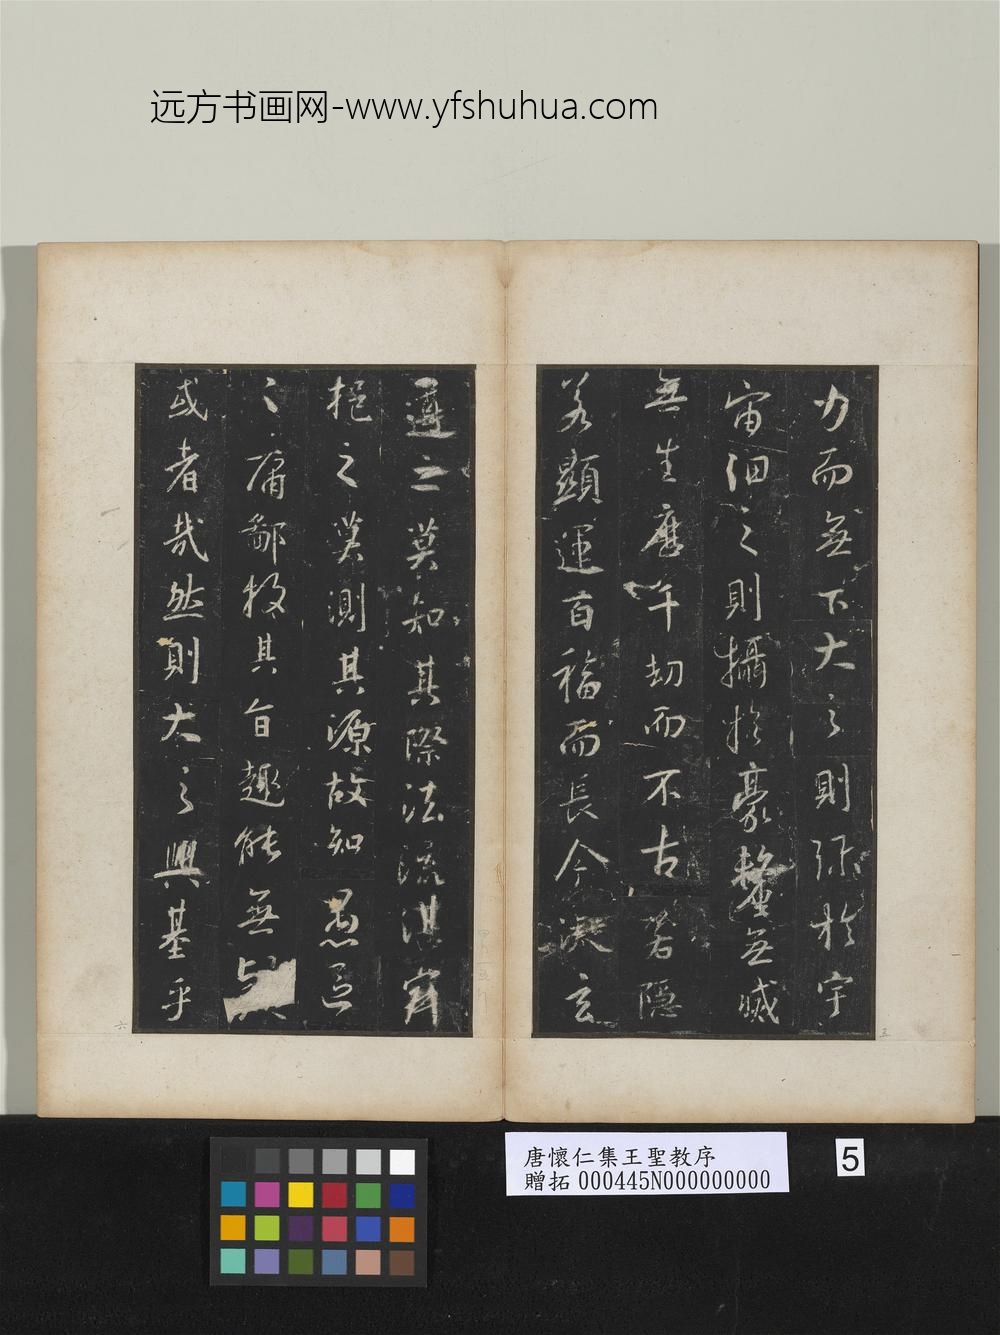 远方书画网-www.yfshuhua.com
力而無下大之則弥於宇
宙細之則攝於豪釐無滅
無生歷千劫而不古若隱
若顯運百福而長今凝玄
遵之莫知其際法流湛寂
挹之莫測其源故知愚區
〻庸鄙投其旨趣能無疑
或者哉然則大之興基乎
五
六
唐懷仁集王聖教序
贈拓 000445N000000000
5